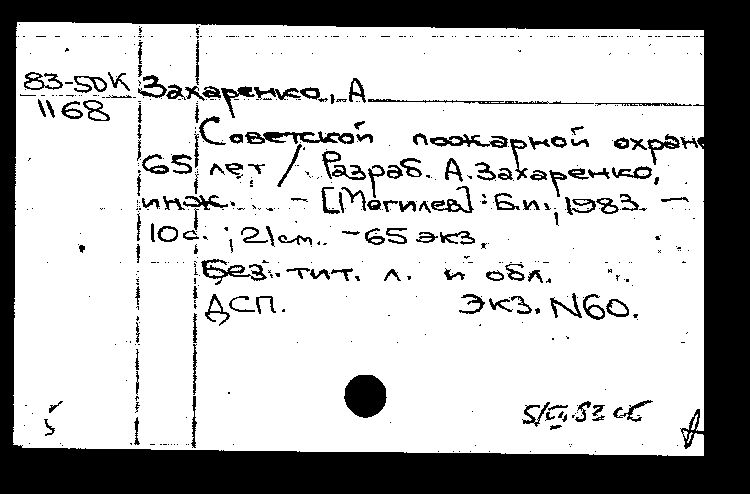 83-5DK Захаренко, А
1168
Советской пожарной охране
65 лет / Разраб. А.Захаренко,
инж. - [Могилев] : Б.и., 1983. -
10с. ; 21см. - 65 экз.
Без тит. л. и обл.
ДСП. Экз. N60.
5